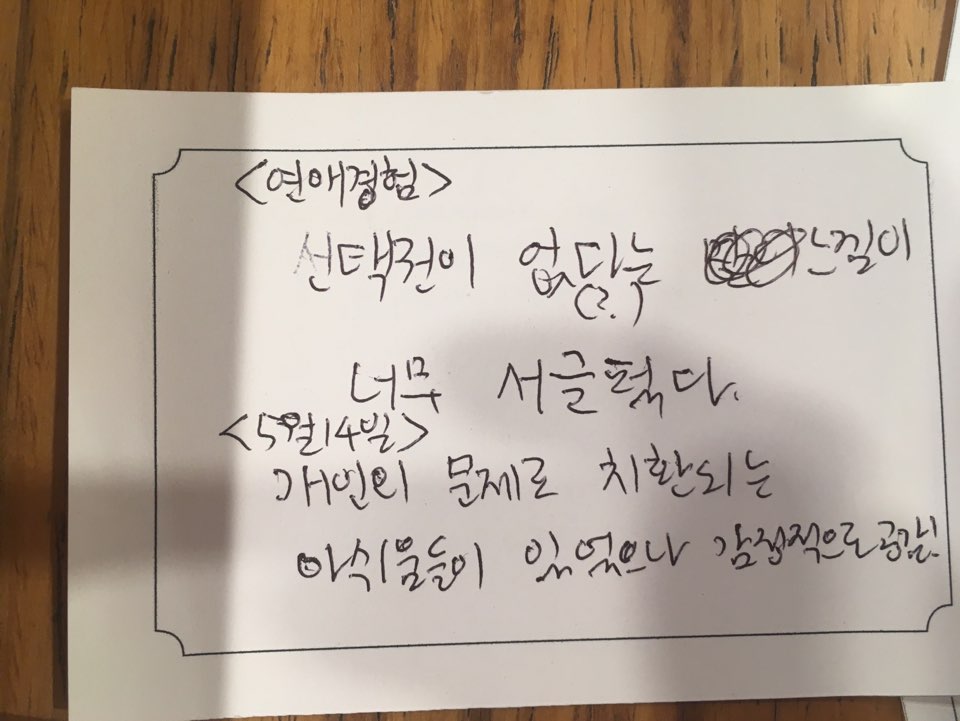 <연애경험>
선택권이 없다는 느낌이
(?)
너무 서글펐다.
<5월14일>
개인의 문제로 치환되는
아쉬움들이 있었으나 감정적으로 공감!